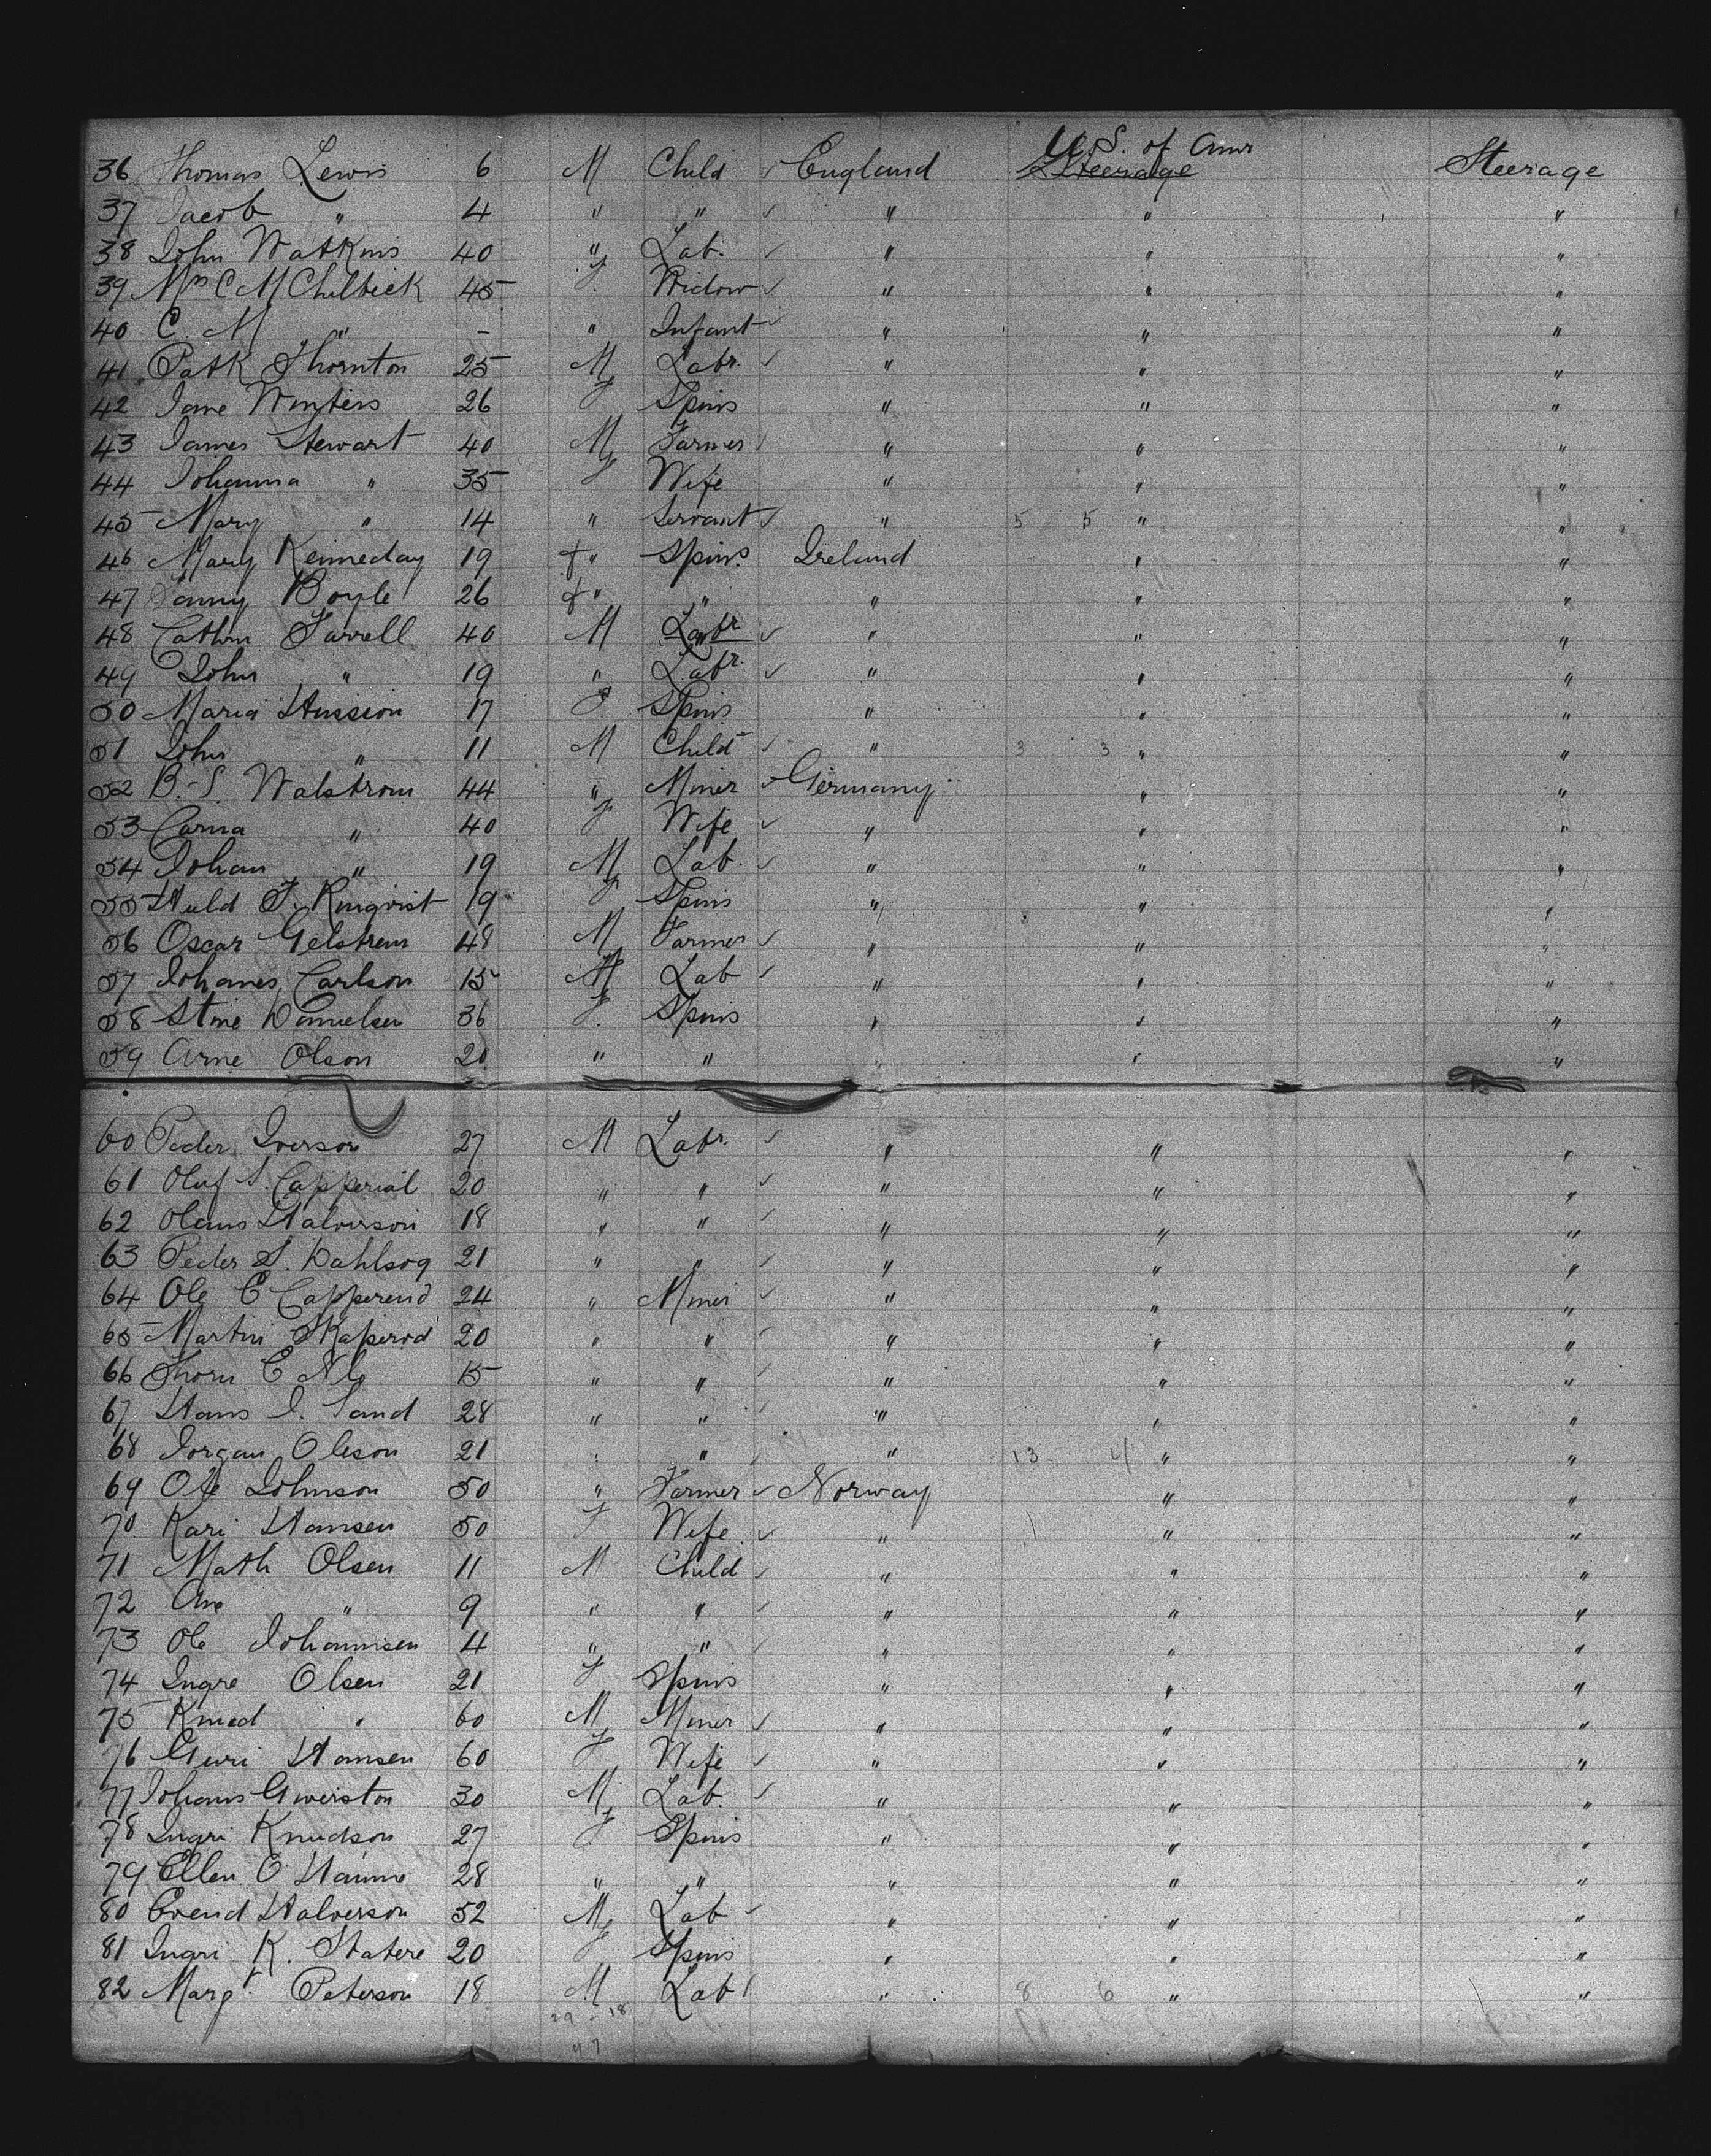 U.S. of Amr
36 Thomas Lewis 6 M Child ✓ England Steerage Steerage
37 Jacob " 4 " " ✓ " " "
38 John Watkins 40 " Lab. ✓ " " "
39 Mrs C M Chilbick 45 F. Widow ✓ " " "
40 C. M " - " Infant ✓ " " "
41 Patk Thornton 25 M Labr. ✓ " " "
42 Jane Winters 26 F Spins " " "
43 James Stewart 40 M Farmer ✓ " " "
44 Johanna " 35 F Wife " " "
45 Mary " 14 " Servant ✓ " 5 5 " "
46 Mary Kenneday 19 f " Spins. Ireland " "
47 Fanny Boyle 26 f " " " " "
48 Cathrn Farrell 40 M Labr ✓ " " "
49 John " 19 " Labr. ✓ " " "
50 Maria Hussion 17 F. Spins " " "
51 John " 11 M Child ✓ " 3 3 " "
52 B. S. Walstrom 44 " Miner ✓ Germany " "
53 Carna " 40 F Wife ✓ " " "
54 Johan " 19 M Lab. ✓ " " "
55 Huld F. Ringvist 19 F Spins " " "
56 Oscar Gelstrem 48 M Farmer ✓ " " "
57 Johanes Carlson 15 M Lab ✓ " " "
58 Stine Danielsen 36 F. Spins " " "
59 Arne Olson 20 " " " " "
60 Peder Iverson 27 M Labr. ✓ " " "
61 Oluf S. Capperial 20 " " ✓ " " "
62 Olaus Halverson 18 " " ✓ " " "
63 Peder S. Dahlsog 21 " " ✓ " " "
64 Ole E Capperend 24 " Miner ✓ " " "
65 Martin Skaperod 20 " " ✓ " " "
66 Thorn E 15 " " ✓ " " "
67 Hans I. Sand 28 " " ✓ " " "
68 Jorgan Oleson 21 " " " 13 4 " "
69 Ole Johnson 50 " Farmer ✓ Norway " "
70 Kari Hansen 50 F Wife ✓ " " "
71 Math Olsen 11 M Child ✓ " " "
72 Ane " 9 " " ✓ " " "
73 Ole Johannsen 4 " " ✓ " " "
74 Ingre Olsen 21 F Spins " " "
75 Kmed " 60 M Miner ✓ " " "
76 Guri Hansen 60 F Wife ✓ " " "
77 Johans Gwerston 30 M Lab. ✓ " " "
78 Ingri Knudson 27 F Spins " " "
79 Ellen O. Hamme 28 " " " " "
80 Evend Halverson 52 M Lab ✓ " " "
81 Ingri K. Statere 20 F Spins " " "
82 Margt. Peterson 18 M Lab ✓ " 8 6 " "
29 - 18
47